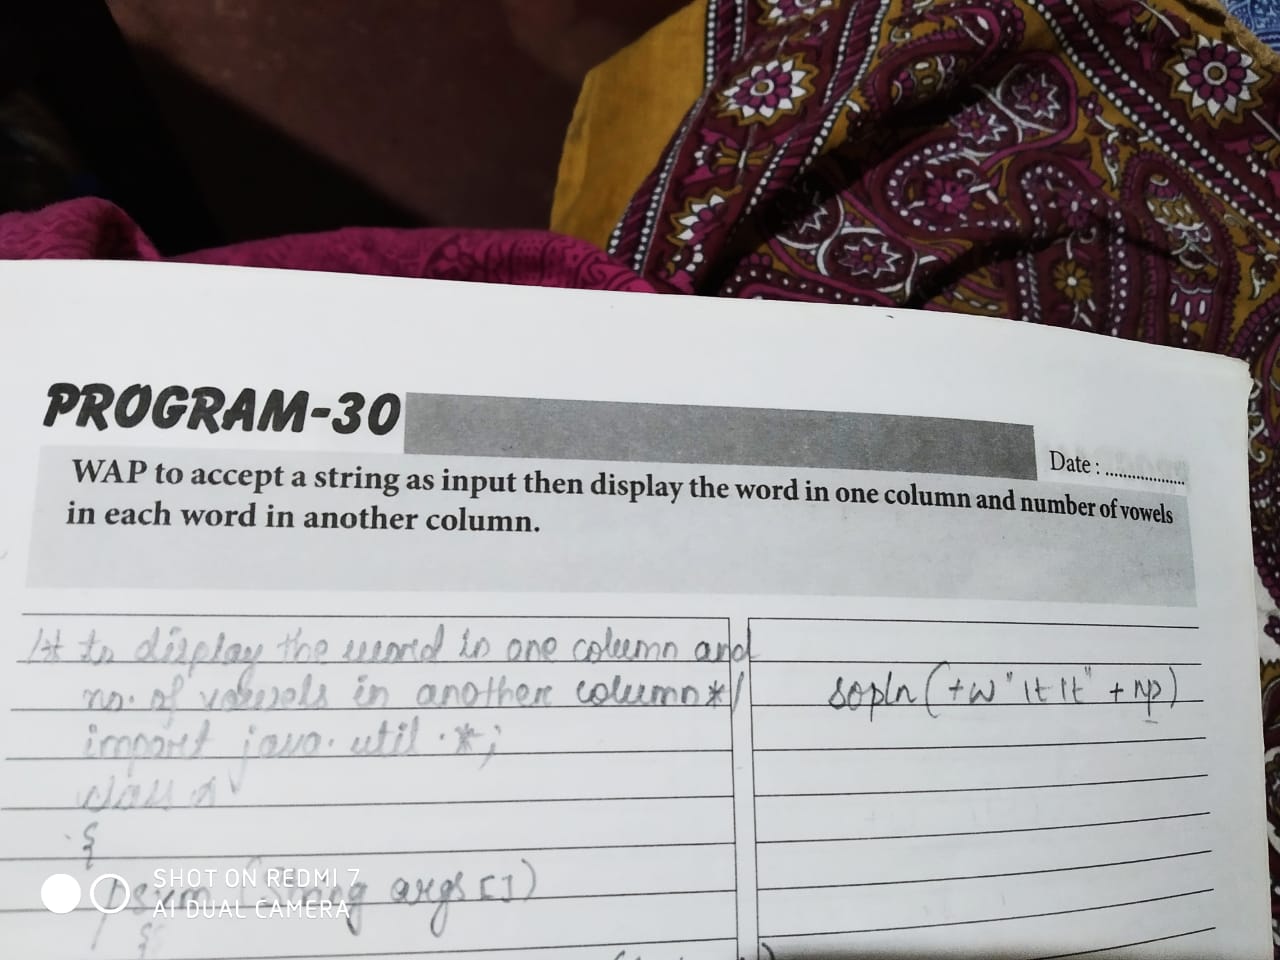 PROGRAM-30
Date : ....................
WAP to accept a string as input then display the word in one column and number of vowels
in each word in another column.
/* to display the word in one column and
no. of vowels in another column */
import java.util.*;
class
{
psvm (String args[])
{
sopln(+w"\t\t"+np)
SHOT ON REDMI 7
AI DUAL CAMERA